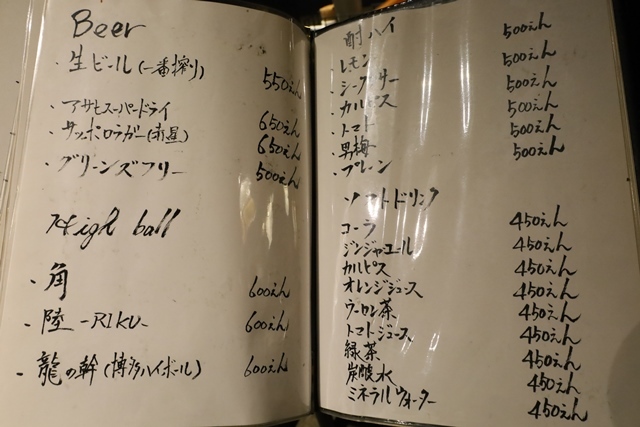 Beer
・生ビール(一番搾り) 550えん
・アサヒスーパードライ 650えん
・サッポロラガー(赤星) 650えん
・グリーンズフリー 500えん
High ball
・角 600えん
・陸 -RIKU- 600えん
・龍の幹(博多ハイボール) 600えん
酎ハイ
・レモン 500えん
・シークァーサー 500えん
・カルピス 500えん
・トマト 500えん
・男梅 500えん
・プレーン 500えん
ソフトドリンク
コーラ 450えん
ジンジャーエール 450えん
カルピス 450えん
オレンジジュース 450えん
ウーロン茶 450えん
トマトジュース 450えん
緑茶 450えん
炭酸水 450えん
ミネラルウォーター 450えん